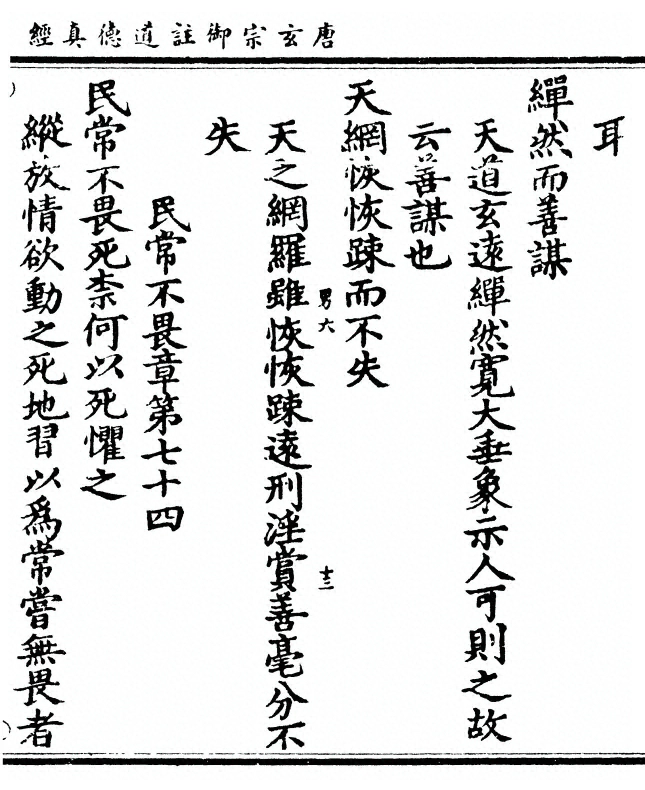 唐玄宗御註道德真經
耳
繟然而善謀
天道玄遠繟然寬大垂象示人可則之故
云善謀也
天網恢恢踈而不失
男六
十二
天之網羅雖恢恢踈遠刑淫賞善毫分不
失
民常不畏章第七十四
民常不畏死柰何以死懼之
縱放情欲動之死地習以爲常嘗無畏者